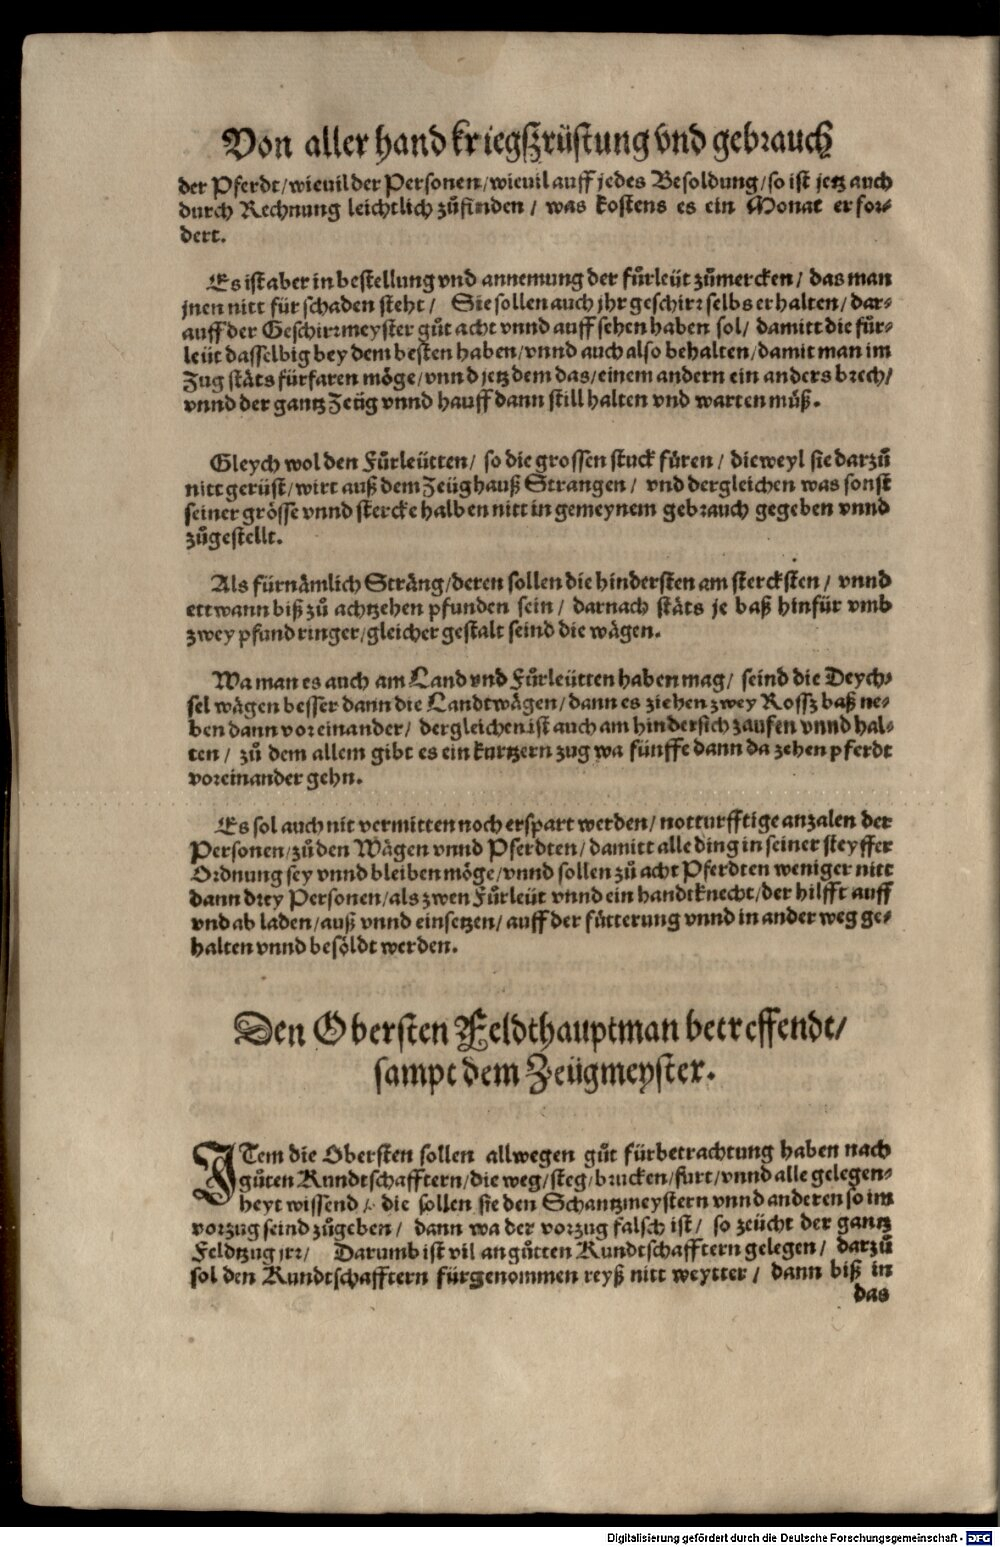 Von aller hand kriegßrüstung vnd gebrauch
der Pferdt/wieuil der Personen/wieuil auff jedes Besoldung/so ist jetz auch
durch Rechnung leichtlich zůfinden / was kostens es ein Monat erfor⸗
dert.
Es ist aber in bestellung vnd annemung der fůrleüt zůmercken/ das man
jnen nitt für schaden steht / Sie sollen auch jhr geschirr selbs erhalten/ dar⸗
auff der Geschirrmeyster gůt acht vnnd auffsehen haben sol/ damitt die fůr⸗
leüt dasselbig bey dem besten haben/vnnd auch also behalten/damit man im
Zug stäts fürfaren möge/vnnd jetz dem das/einem andern ein anders brech/
vnnd der gantz Zeüg vnnd hauff dann still halten vnd warten můß.
Gleych wol den Fůrleütten/ so die grossen stuck fůren / dieweyl sie darzů
nitt gerüst/wirt auß dem Zeüghauß Strangen/ vnd dergleichen was sonst
seiner grösse vnnd stercke halben nitt in gemeynem gebrauch gegeben vnnd
zůgestellt.
Als fürnämlich Sträng/deren sollen die hindersten am stercksten / vnnd
ettwann biß zů achtzehen pfunden sein / darnach stäts je baß hinfür vmb
zwey pfund ringer/gleicher gestalt seind die wägen.
Wa man es auch am Land vnd Fůrleütten haben mag/ seind die Deych⸗
sel wägen besser dann die Landtwägen/dann es ziehen zwey Rossz baß ne⸗
ben dann voreinander/ dergleichen ist auch am hindersich zaufen vnnd hal⸗
ten / zů dem allem gibt es ein kurtzern zug wa fünffe dann da zehen pferdt
voreinander gehn.
Es sol auch nit vermitten noch erspart werden/ notturfftige anzalen der
Personen/zů den Wägen vnnd Pferdten/damitt alle ding in seiner steyffer
Ordnung sey vnnd bleiben möge/vnnd sollen zů acht Pferdten weniger nitt
dann drey Personen/als zwen Fůrleüt vnnd ein handtknecht/der hilfft auff
vnd ab laden/auß vnnd einsetzen/ auff der fůtterung vnnd in ander weg ge⸗
halten vnnd besöldt werden.
Den Obersten Feldthauptman betreffendt/
sampt dem Zeügmeyster.
ITem die Obersten sollen allwegen gůt fürbetrachtung haben nach
gůten Kundtschafftern/die weg/steg/brucken/furt/vnnd alle gelegen⸗
heyt wissend / die sollen sie den Schantzmeystern vnnd anderen so im
vorzug seind zůgeben / dann wa der vorzug falsch ist/ so zeücht der gantz
Feldtzug jrr/ Darumb ist vil an gůtten Kundtschafftern gelegen / darzů
sol den Kundtschafftern fürgenommen reyß nitt weytter / dann biß in
das
Digitalisierung gefördert durch die Deutsche Forschungsgemeinschaft - DFG